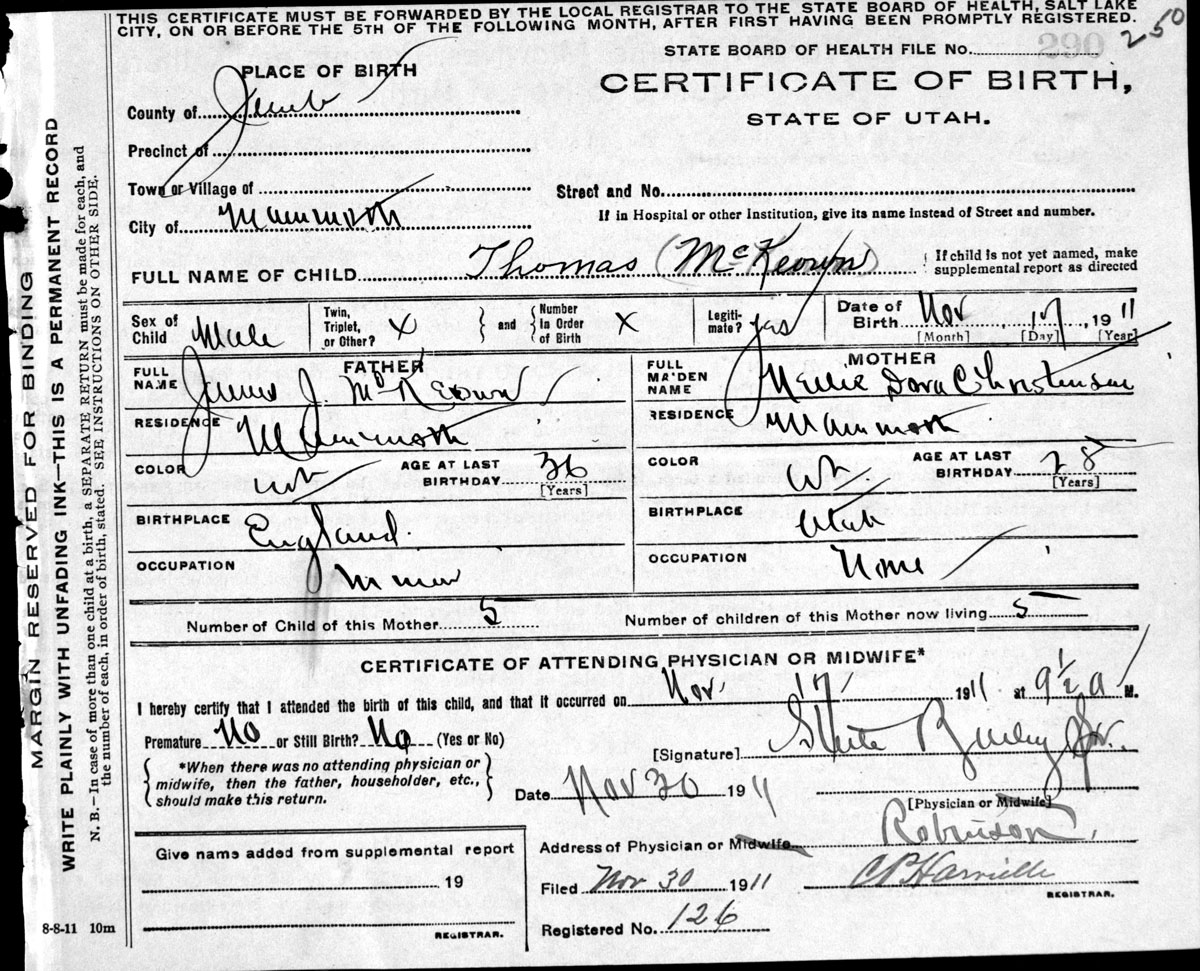 THIS CERTIFICATE MUST BE FORWARDED BY THE LOCAL REGISTRAR TO THE STATE BOARD OF HEALTH, SALT LAKE
CITY, ON OR BEFORE THE 5TH OF THE FOLLOWING MONTH, AFTER FIRST HAVING BEEN PROMPTLY REGISTERED.
250
STATE BOARD OF HEALTH FILE No. 290
CERTIFICATE OF BIRTH,
STATE OF UTAH.
PLACE OF BIRTH
County of Juab
Precinct of
Town or Village of
Street and No.
City of Mammoth
If in Hospital or other Institution, give its name instead of Street and number.
FULL NAME OF CHILD Thomas (McKeown)
{ If child is not yet named, make
supplemental report as directed
Sex of Child Male
Twin, Triplet, or Other? X } and { Number In Order of Birth X
Legitimate? yes
Date of Birth Nov 17, 1911
[Month] [Day] [Year]
FATHER
FULL NAME James J. McKeown
RESIDENCE Mammoth
COLOR Wh
AGE AT LAST BIRTHDAY 36
[Years]
BIRTHPLACE England.
OCCUPATION Miner
MOTHER
FULL MAIDEN NAME Nellie Dora Christensen
RESIDENCE Mammoth
COLOR Wh
AGE AT LAST BIRTHDAY 28
[Years]
BIRTHPLACE Utah
OCCUPATION None
Number of Child of this Mother 5
Number of children of this Mother now living 5
CERTIFICATE OF ATTENDING PHYSICIAN OR MIDWIFE*
I hereby certify that I attended the birth of this child, and that it occurred on Nov. 17, 1911 at 9½ a M.
Premature No or Still Birth? No (Yes or No)
{ *When there was no attending physician or
midwife, then the father, householder, etc.,
should make this return. }
[Signature] Steele Bailey Jr.
Date Nov 30 1911
[Physician or Midwife]
Address of Physician or Midwife Robinson.
Filed Nov 30 1911
REGISTRAR.
Registered No. 126
Give name added from supplemental report
19
REGISTRAR.
8-8-11 10m
MARGIN RESERVED FOR BINDING
WRITE PLAINLY WITH UNFADING INK—THIS IS A PERMANENT RECORD
N. B.—In case of more than one child at a birth, a SEPARATE RETURN must be made for each, and
the number of each, in order of birth, stated. SEE INSTRUCTIONS ON OTHER SIDE.